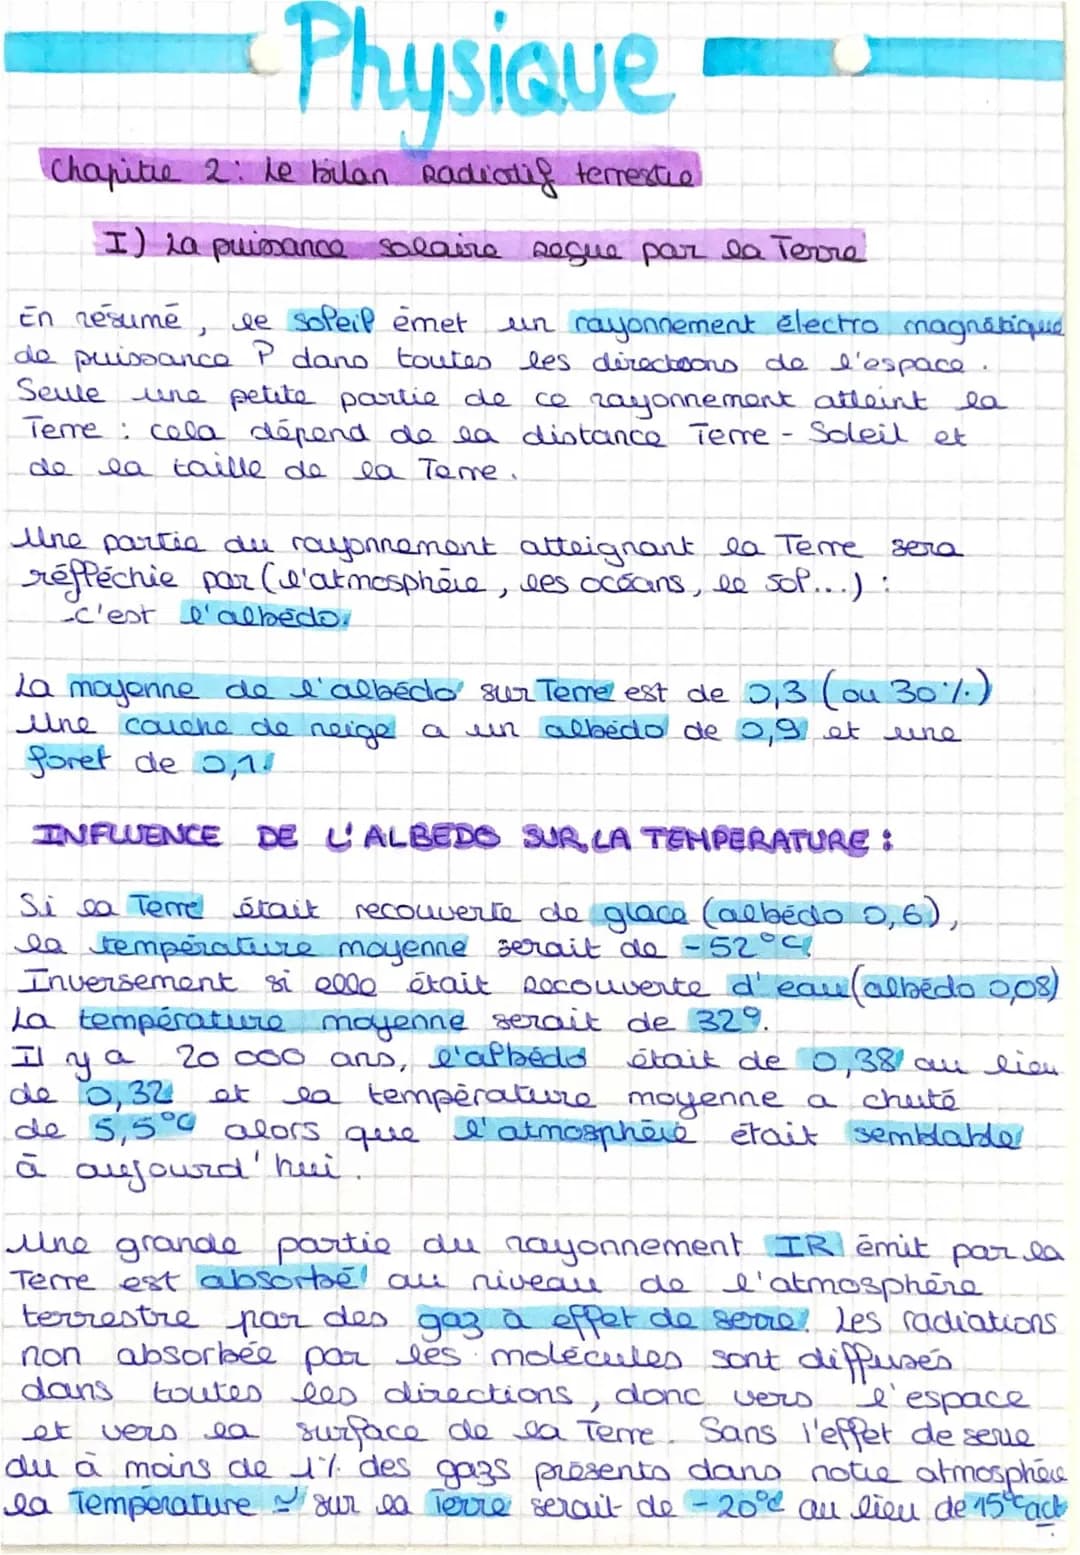 Physique
Chapitre 2: Le bilan Radiatif terrestre
I) La puissance solaire reçue par la Terre
En résumé, le soleil émet un rayonnement électro magnétique
de puissance P dans toutes les directions de l'espace.
Seule une petite partie de ce rayonnement atteint la
Terre : cela dépend de la distance Terre - Soleil et
de la taille de la Terre.
Une partie du rayonnement atteignant la Terre sera
réfléchie par (l'atmosphère, les océans, le sol...) :
c'est l'albédo.
La moyenne de l'albédo sur Terre est de 0,3 (ou 30%)
Une couche de neige a un albédo de 0,9 et une
foret de 0,1.
INFLUENCE DE L'ALBEDO SUR LA TEMPERATURE :
Si la Terre était recouverte de glace (albédo 0,6),
la température moyenne serait de -52°C
Inversement si elle était recouverte d'eau (albédo 0,08)
La température moyenne serait de 32°.
Il y a 20 000 ans, l'albédo était de 0,38 au lieu
de 0,32 et la température moyenne a chuté
de 5,5°C alors que l'atmosphère était semblable
à aujourd'hui.
Une grande partie du rayonnement IR émit par la
Terre est absorbé au niveau de l'atmosphère
terrestre par des gaz à effet de serre. Les radiations
non absorbée par les molécules sont diffusés
dans toutes les directions, donc vers l'espace
et vers la surface de la Terre. Sans l'effet de serre
du à moins de 1% des gazs présents dans notre atmosphère
la Température sur la Terre serait de -20°C au lieu de 15°C act